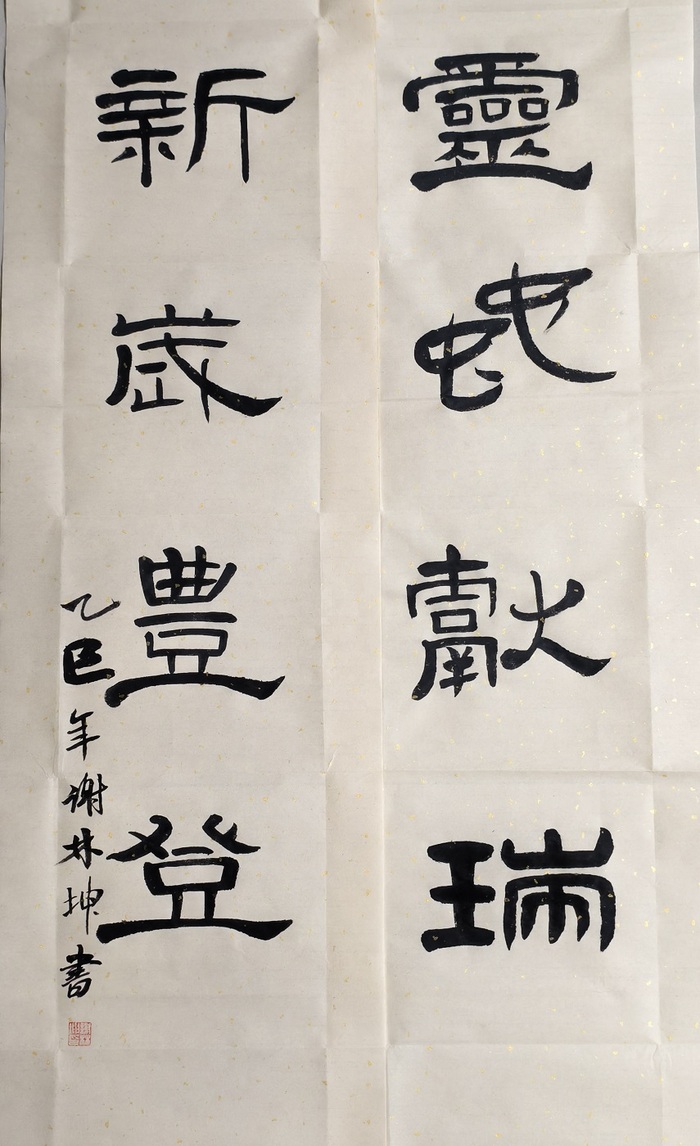 靈蛇獻瑞
新歲豐登
乙巳年谢林坤書